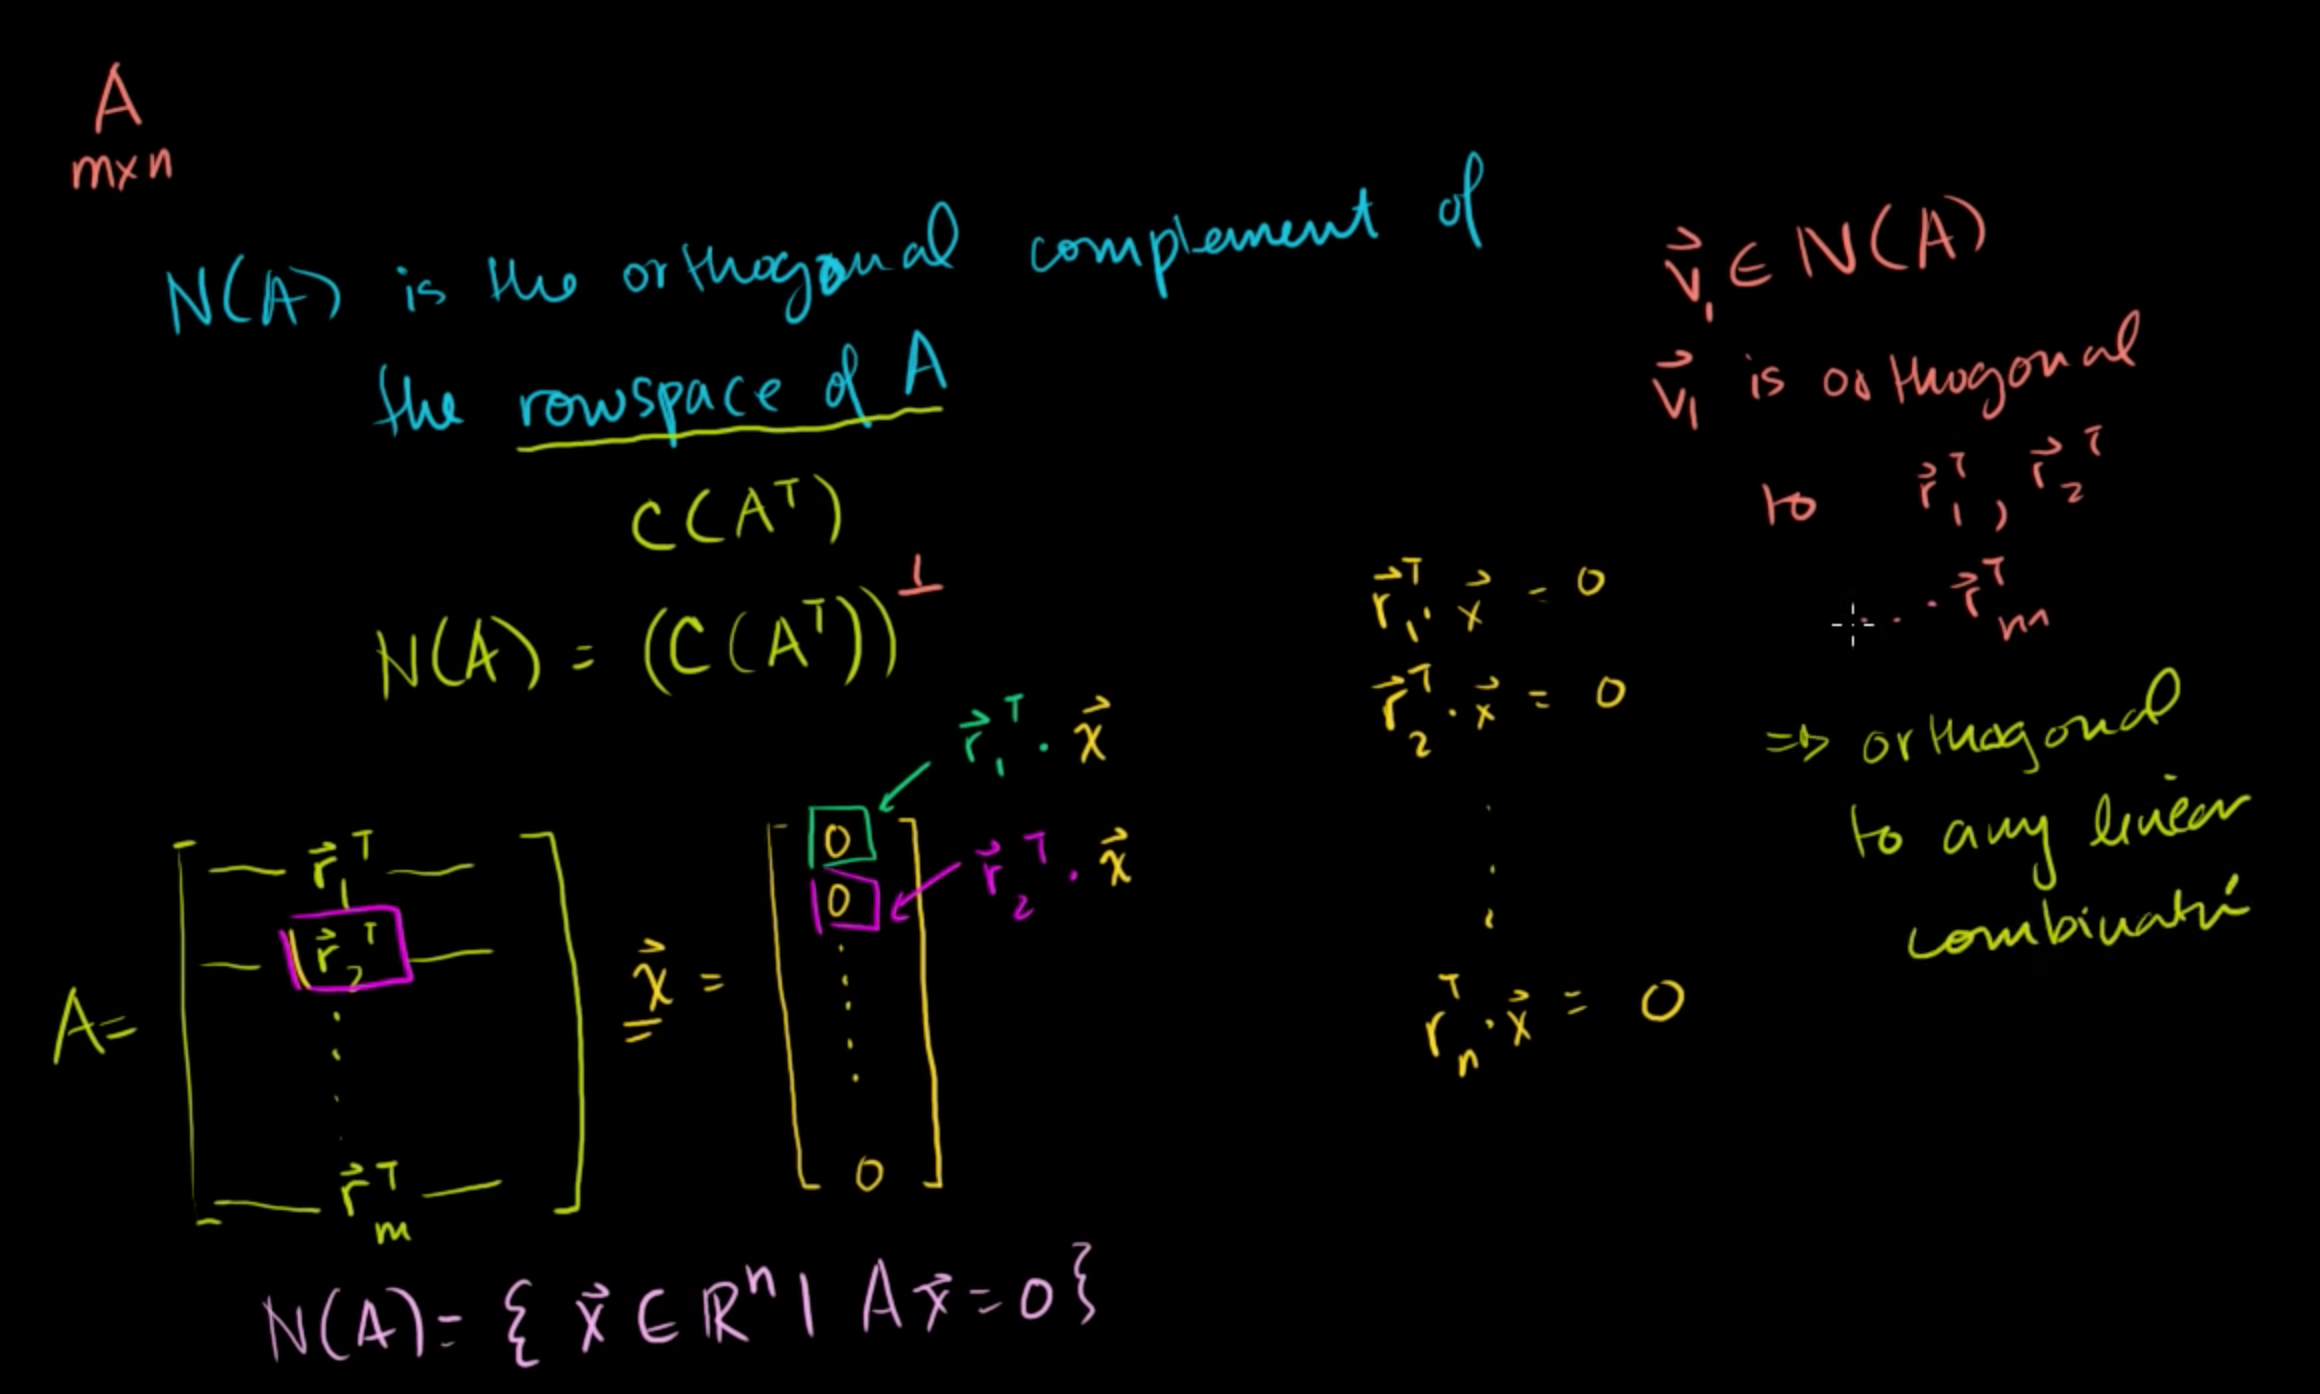 A
m×n
N(A) is the orthogonal complement of
the rowspace of A
C(Aᵀ)
N(A) = (C(Aᵀ))^⊥
A = [ — r⃗₁ᵀ —
— r⃗₂ᵀ —
⋮
— r⃗ₘᵀ — ] x⃗ = [ 0
0
⋮
0 ]
r⃗₁ᵀ · x⃗
r⃗₂ᵀ · x⃗
N(A) = { x⃗ ∈ ℝⁿ | A x⃗ = 0 }
r⃗₁ᵀ · x⃗ = 0
r⃗₂ᵀ · x⃗ = 0
⋮
rₙᵀ · x⃗ = 0
v⃗₁ ∈ N(A)
v⃗₁ is orthogonal
to r⃗₁ᵀ, r⃗₂ᵀ
... r⃗ₘᵀ
⇒ orthogonal
to any linear
combinati